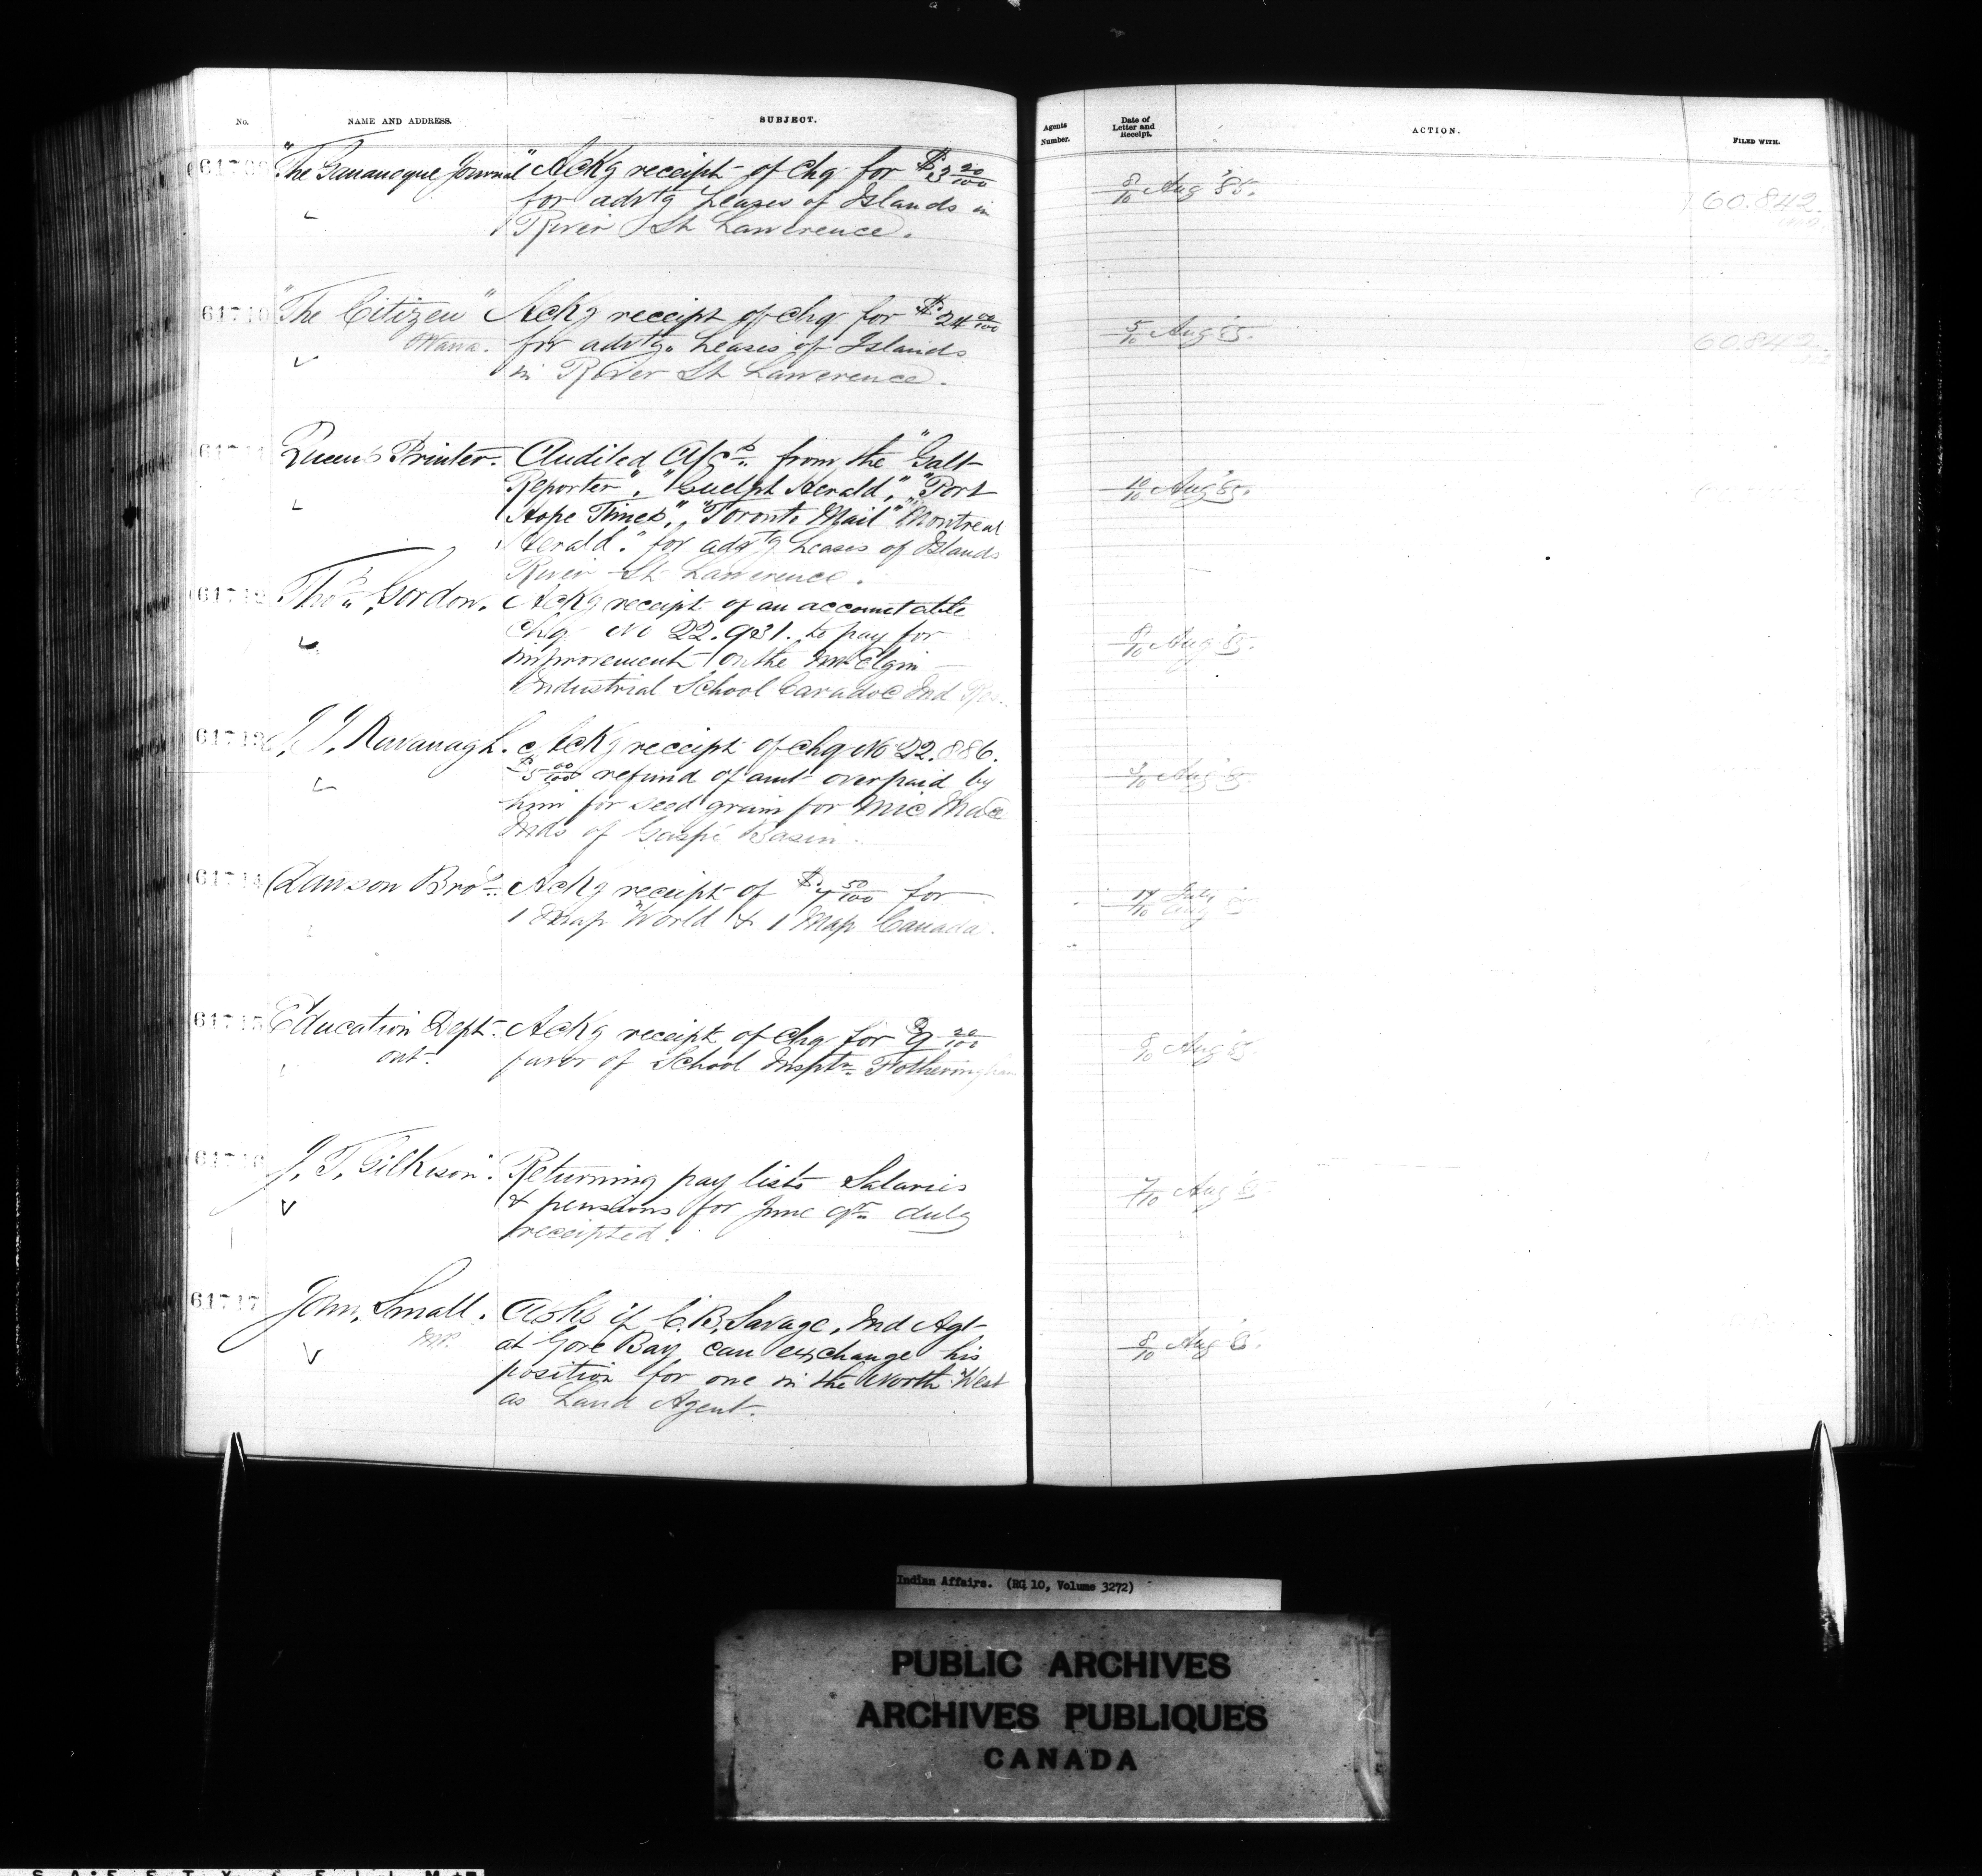 No. NAME AND ADDRESS. SUBJECT. Agents Number. Date of Letter and Receipt. ACTION. FILED WITH.
61709 "The Gananoque Journal" Ackg receipt of chq for $13 20/100 8/10 Aug '85. 60.842
for advtg Leases of Islands in
River St Lawerence.
61710 "The Citizen" Ackg receipt of chq for $24 00/100 5/10 Aug 85. 60.842
Ottawa. for advtg. Leases of Islands
in River St Lawerence.
61711 Queens Printer. Audited A/cts from the "Galt
Reporter", "Guelph Herald", "Port 10/10 Aug '85.
Hope Times", "Toronto Mail" "Montreal
Herald." for advtg Leases of Islands
River St Lawerence.
61712 Thos. Gordon. Ackg receipt of an accountable
chq No 22.931. to pay for 8/10 Aug 85.
improvement on the Mt Elgin
Industrial School Caradoc Ind Res.
61713 J. J. Kavanagh. Ackg receipt of chq No 22.886.
$5 00/100 refund of amt overpaid by /10 Aug 85
him for seed grain for Mic Mac
Inds of Gaspé Basin.
61714 Dawson Bros. Ackg receipt of $7 50/100 for 14 July
1 Map World & 1 Map Canada. 10 Aug
61715 Education Dept. Ackg receipt of chq for $9 20/100
Ont. favor of School Insptr. Fotheringham 8/10 Aug 85.
61716 J. T. Gilkison. Returning pay lists Salaries
& pensions for June qr. duly 7/10 Aug 85.
receipted.
61717 John Small. Asks if C. B. Savage, Ind Agt
M.P. at Gore Bay can exchange his 8/10 Aug 85.
position for one in the North West
as Land Agent.
Indian Affairs. (RG 10, Volume 3272)
PUBLIC ARCHIVES
ARCHIVES PUBLIQUES
CANADA